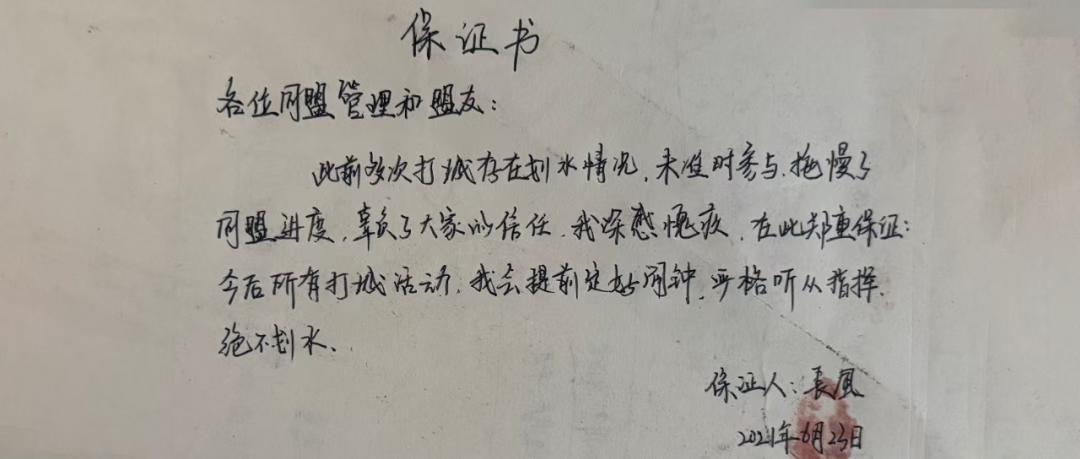 保证书
各位同盟管理和盟友：
此前多次打城存在划水情况，未准时参与，拖慢了
同盟进度，辜负了大家的信任，我深感愧疚，在此郑重保证：
今后所有打城活动，我会提前定好闹钟，严格听从指挥，
绝不划水、
保证人：長風
2021年6月23日